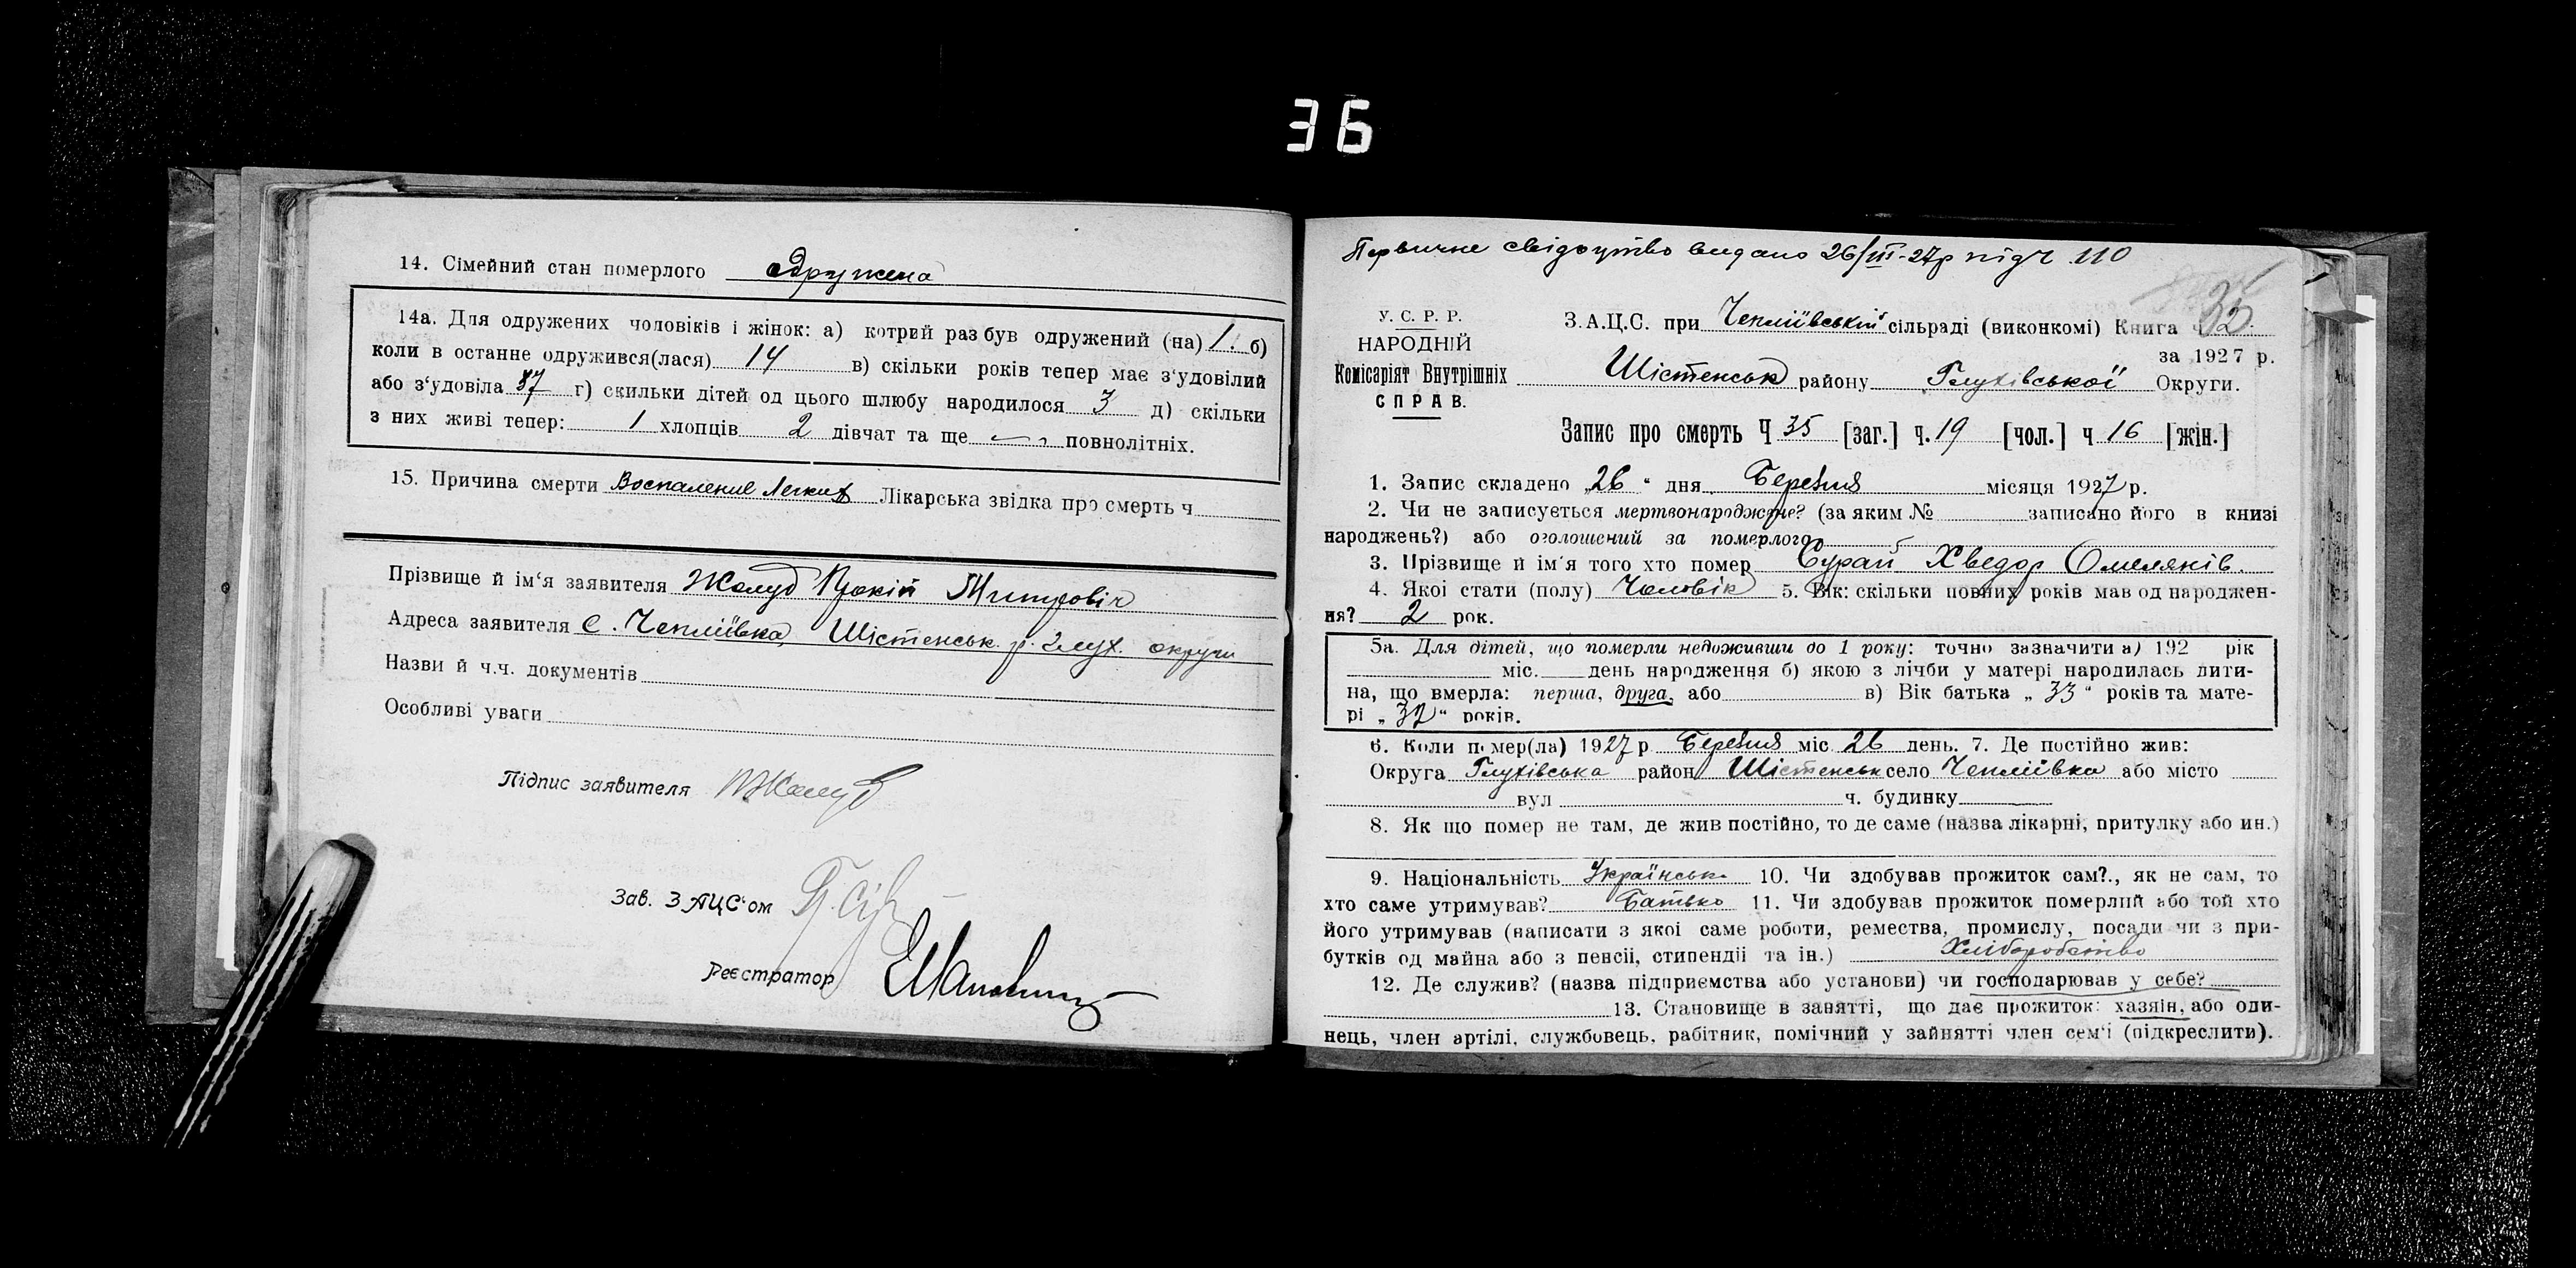 36
14. Сімейний стан померлого одружена
14а. Для одружених чоловіків і жінок: а) котрий раз був одружений (на) 1. б)
коли в останне одружився(лася) 14 в) скільки років тепер має з‘удовілий
або з‘удовіла 37 г) скильки дітей од цього шлюбу народилося 3 д) скільки
з них живі тепер: 1 хлопців 2 дівчат та ще — повнолітніх.
15. Причина смерти Воспаление Легких Лікарська звідка про смерть ч
Прізвище й ім‘я заявителя Жолуд Прокіп Митрович
Адреса заявителя с. Чепліївка, Шістенськ. р. Глух. округи
Назви й ч.ч. документів
Особливі уваги
Підпис заявителя ПЖолуд
Зав. ЗАЦС‘ом
Реєстратор
Первичне свідоцтво видано 26/III-27р під Ч 110
35.
У. С. Р. Р.
НАРОДНІЙ
Комісаріят Внутрішніх
СПРАВ.
З.А.Ц.С. при Чепліївській сільраді (виконкомі) Книга ч
за 1927 р.
Шістенськ району Глухівської Округи.
Запис про смерть Ч 35 [заг.] ч. 19 [чол.] ч 16 [жін.]
1. Запис складено „26“ дня Березня місяця 1927 р.
2. Чи не записується мертвонароджене? (за яким № записано його в книзі
народжень?) або оголошений за померлого
3. Прізвище й ім‘я того хто помер Бурай Хведор Омелянів.
4. Якої стати (полу) Чоловік 5. Вік: скільки повних років мав од народжен-
ня? 2 рок.
5а. Для дітей, що померли недоживши до 1 року: точно зазначити а) 192 рік
міс. день народження б) якою з лічби у матері народилась дити-
на, що вмерла: перша, друга, або в) Вік батька „33“ років та мате-
рі „32“ років.
6. Коли помер(ла) 1927 р Березня міс 26 день. 7. Де постійно жив:
Округа Глухівська район Шістенськ село Чепліївка або місто
вул ч. будинку
8. Як що помер не там, де жив постійно, то де саме (назва лікарні, притулку або ин.)
9. Національність Українськ 10. Чи здобував прожиток сам?., як не сам, то
хто саме утримував? Батько 11. Чи здобував прожиток померлий або той хто
його утримував (написати з якої саме роботи, ремества, промислу, посади чи з при-
бутків од майна або з пенсії, стипендії та ін.) Хліборобство
12. Де служив? (назва підприємства або установи) чи господарював у себе?
13. Становище в занятті, що дає прожиток: хазяїн, або оди-
нець, член артілі, службовець, рабітник, помічний у зайнятті член сем‘ї (підкреслити).